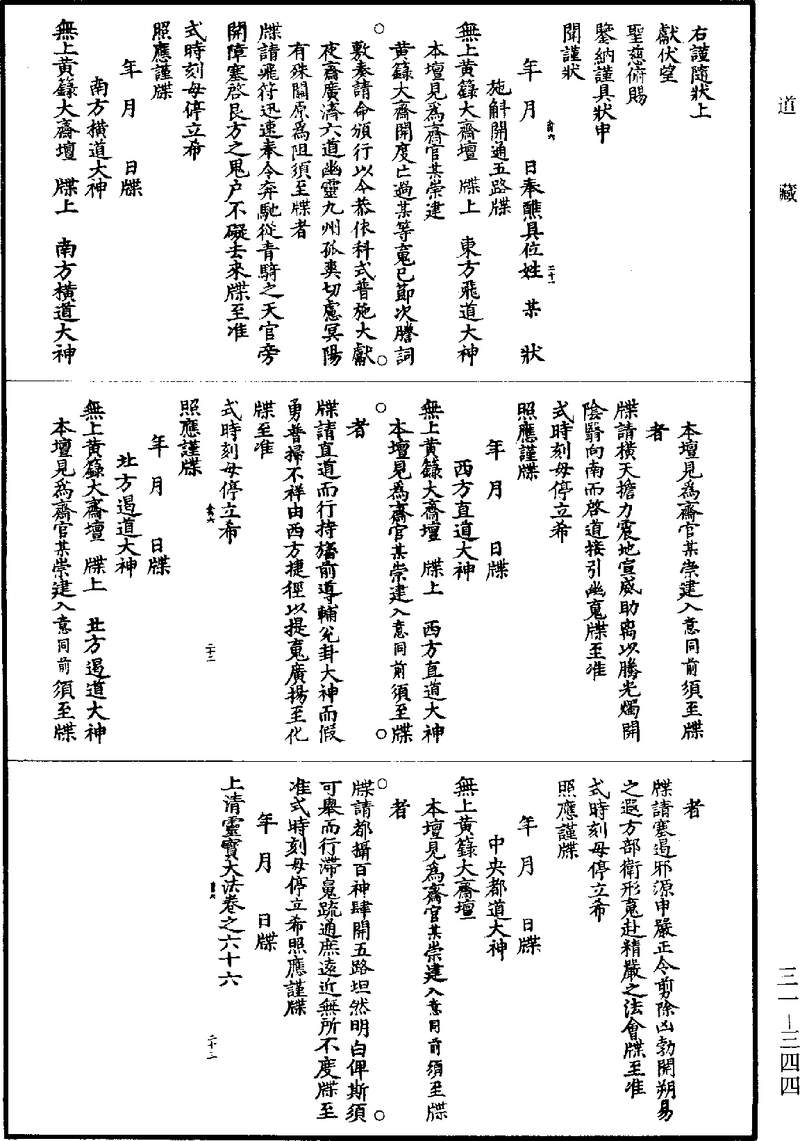 道藏
右謹隨狀上
獻伏望
聖慈俯賜
鑒納謹具狀申
聞謹狀
年 月 日奉醮具位姓 某 狀
施斛開通五路牒
無上黃籙大齋壇 牒上 東方飛道大神
本壇見為齋官某崇建
黃籙大齋開度亡過某等䰟已節次謄詞
敷奏請命頒行以今恭依科式普施大獻
夜齋廣濟六道幽靈九州孤爽切慮冥陽
有殊關原為阻須至牒者
牒請飛符迅速奉令奔馳從青騎之天官旁
開障塞啓艮方之鬼戶不礙去來牒至准
式時刻毋停立希
照應謹牒
年 月 日牒
南方橫道大神
無上黃籙大齋壇 牒上 南方橫道大神
本壇見為齋官某崇建入意同前須至牒
者
牒請橫天擔力震地宣威助离以騰光燭開
陰翳向南而啓道接引幽䰟牒至准
式時刻毋停立希
照應謹牒
年 月 日牒
西方直道大神
無上黃籙大齋壇 牒上 西方直道大神
本壇見為齋官某崇建入意同前須至牒
者
牒請直道而行持旛前導輔兌卦大神而假
勇普掃不祥由西方捷徑以提䰟廣揚至化
牒至准
式時刻毋停立希
照應謹牒
年 月 日牒
北方遏道大神
無上黃籙大齋壇 牒上 北方遏道大神
本壇見為齋官某崇建入意同前須至牒
者
牒請塞遏邪源申嚴正令剪除凶勃開朔易
之遐方部衛形䰟赴精嚴之法會牒至准
式時刻毋停立希
照應謹牒
年 月 日牒
中央都道大神
無上黃籙大齋壇
本壇見為齋官某崇建入意同前須至牒
者
牒請都攝百神肆開五路坦然明白俾斯須
可舉而行滯䰟疏通庶遠近無所不度牒至
准式時刻毋停立希照應謹牒
年 月 日牒
上清靈寶大法卷之六十六
二十一
二十二
三一—三四四